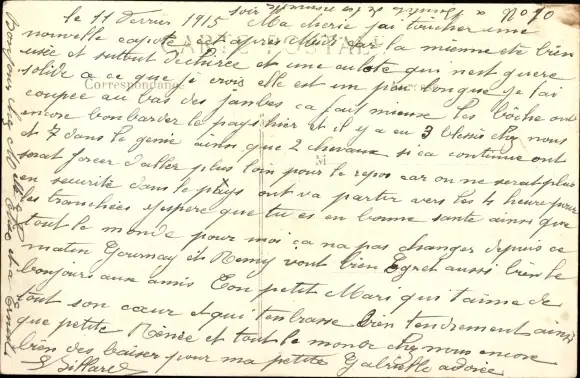 le 11 Fevrier 1915 Ma cherie j'ai toucher une
No 70
nouvelle capote cet apres Midi car la mienne ete bien
usée et surtout dechirée et une culote qui nest guere
solide a ce que je crois elle est un peu longue je l'ai
coupée au bas des jambes ca fait mieux les boche ont
encore bombarder le pays hier et il y a eu 3 blessés chez nous
et 7 dans le genie ainsi que 2 chevaux si ca continue ont
serat forcer d'aller plus loin pour le repos car on ne serat plus
en securité dans le pays ont va partir vers les 4 heure pour
les tranchées j'espere que tu es en bonne santé ainsi que
tout le monde pour moi ça na pas changer depuis ce
matin Gournay et Remy vont bien Egret aussi bien le
bonjour aux amis Ton petit Mari qui t'aime de
tout son cœur et qui t'enbrasse bien tendrement ainsi
que petite Renée et tout le monde chez nous encore
bien des baiser pour ma petite Gabrielle adorée
CARTE POSTALE
Correspondance
M
Bonjour chez